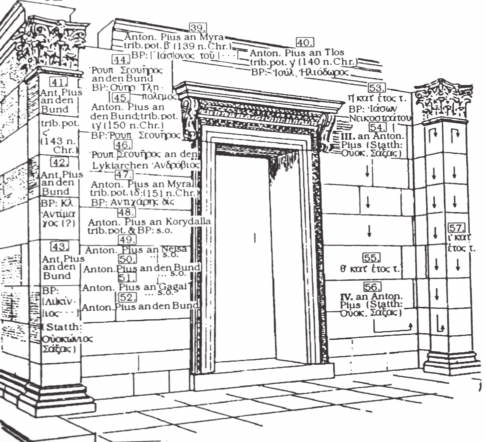 39.
Anton. Pius an Myra
trib.pot. β̄ (139 n.Chr.)
BP: [Ἰάσονος τοῦ] ···
40.
Anton. Pius an Tlos
trib.pot. γ (140 n.Chr.)
BP:- Ἰούλ. Ἡλιόδωρος
41.
Ant. Pius
an den
Bund
trib.pot.
ς
(143 n.
Chr.)
42.
Ant. Pius
an den
Bund
BP: Κλ
Ἀντίμα
χος (?)
43.
Ant. Pius
an den
Bund
BP:
[Λικίν
ιος ···]
(Statth:
Οὐοκώνιος
Σάξας)
44.
Ρουπ Σεουῆρος
an den Bund
BP: Οὐηρ Τλη
πόλεμος
45.
Anton. Pius an
den Bund; trib.pot
ιγ (150 n.Chr.)
BP: Ρουπ Σεουῆρος
46.
Ρουπ Σεουῆρος an den
Lykiarchen Ἀνδρόβιος
47.
Anton. Pius an Myra
trib.pot. ιδ (151 n.Chr.)
BP: Αντιχάρης δίς
48.
Anton. Pius an Korydalla
trib.pot. & BP: s.o.
49.
Anton. Pius an Neisa
... s.o.
50.
Anton. Pius an den Bund
... s.o.
51.
Anton. Pius an Gagai
... s.o.
52.
Anton. Pius an den Bund
53.
η κατ' ἔτος τ.
BP: Ἰάσων
Νεικοστράτου
54.
III. an Anton.
Pius (Statth:
Οὐοκ. Σάξας)
55.
θ' κατ' ἔτος τ.
56.
IV. an Anton.
Pius (Statth:
Οὐοκ. Σάξας)
57.
ι' κατ'
ἔτος τ.